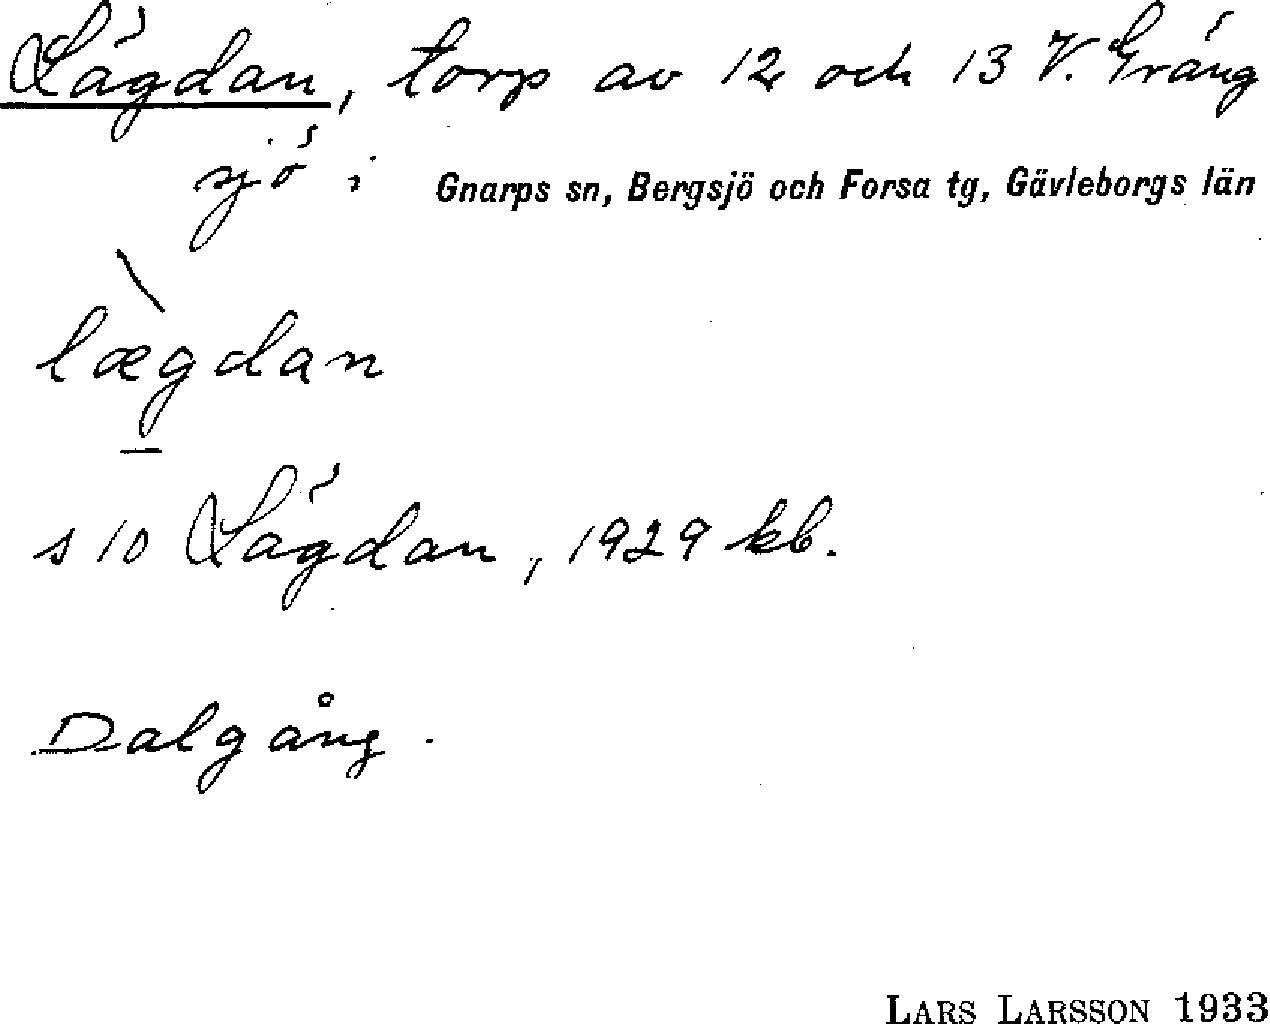 Lägdan, torp av 12 och 13 V. Gräng
sjö i Gnarps sn, Bergsjö och Forsa tg, Gävleborgs län
lægdan
s 10 Lägdan, 1929 kb.
Dalgång.
LARS LARSSON 1933